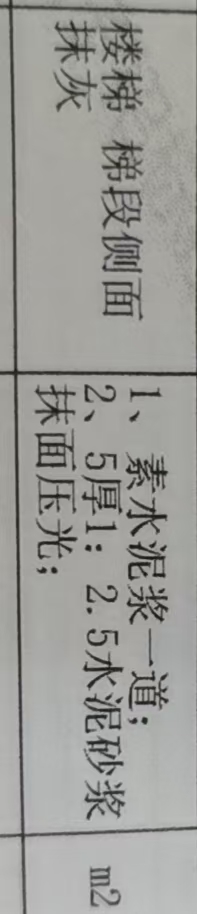 楼梯 梯段侧面
抹灰
1、素水泥浆一道;
2、5厚1: 2.5水泥砂浆
抹面压光;
m2